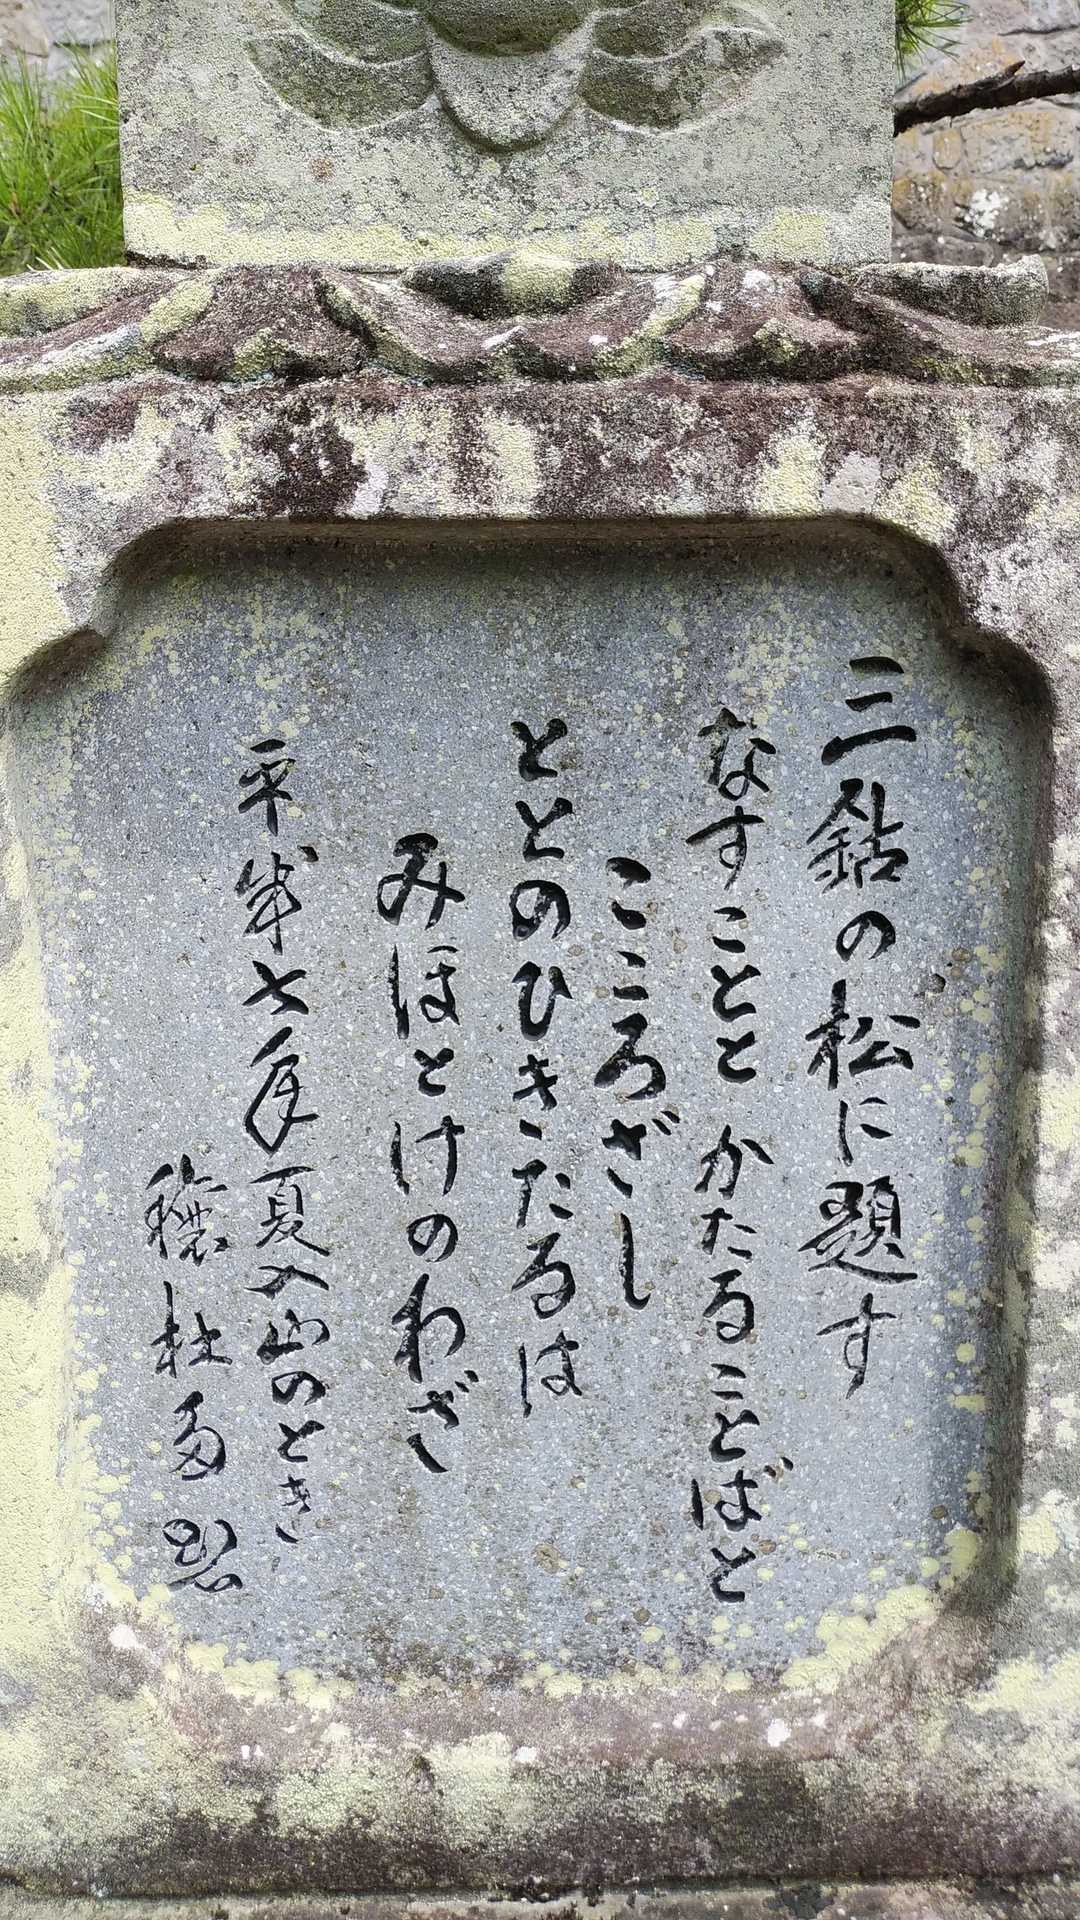 三鈷の松に題す
なすことと かたることばと
こころざし
ととのひきたるは
みほとけのわざ
平成七年夏入山のとき
杜多